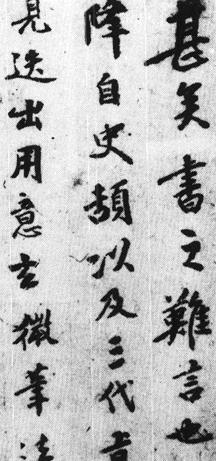 甚矣書之難言也
降自史頡以及三代
見迭出用意古微筆法